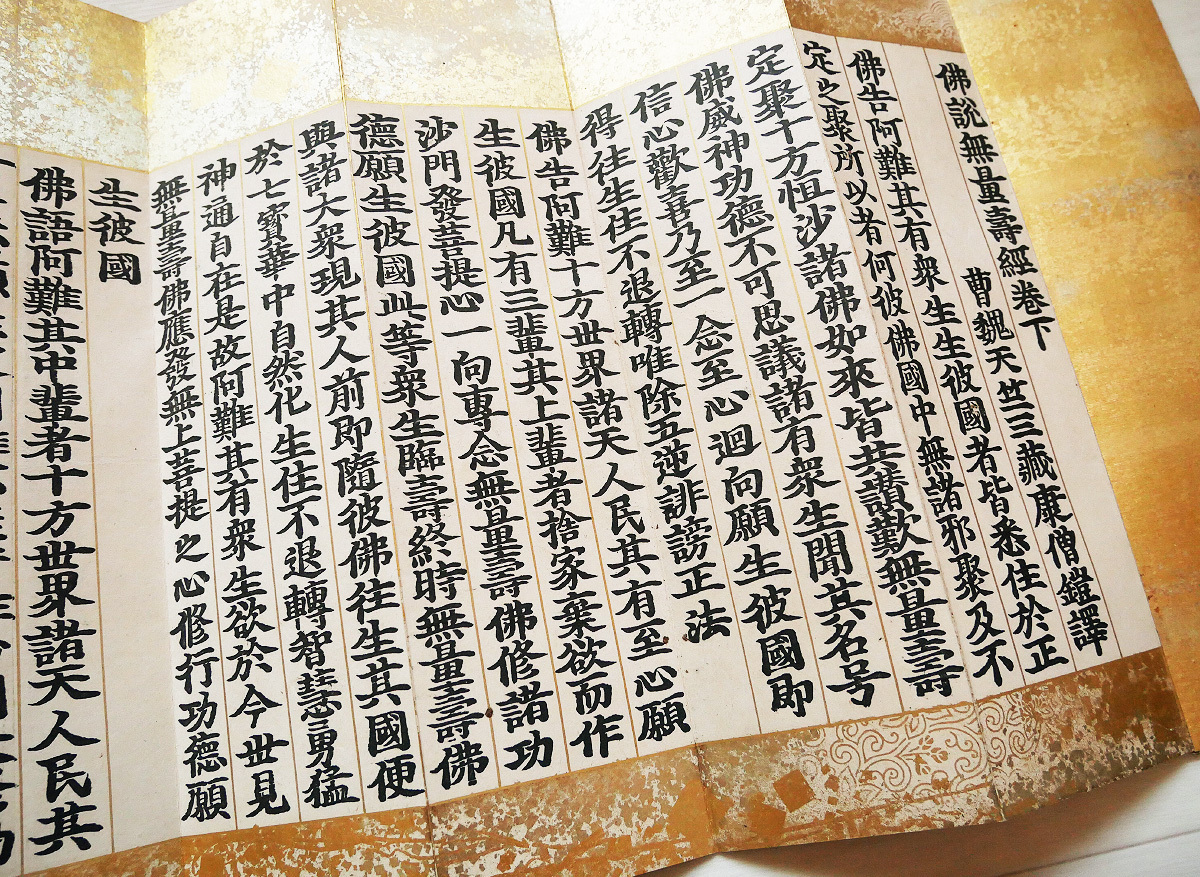 佛說無量壽經卷下
曹魏天竺三藏康僧鎧譯
佛告阿難其有衆生生彼國者皆悉住於正
定之聚所以者何彼佛國中無諸邪聚及不
定聚十方恒沙諸佛如來皆共讚歎無量壽
佛威神功德不可思議諸有衆生聞其名号
信心歡喜乃至一念至心迴向願生彼國即
得往生住不退轉唯除五逆誹謗正法
佛告阿難十方世界諸天人民其有至心願
生彼國凡有三輩其上輩者捨家棄欲而作
沙門發菩提心一向專念無量壽佛修諸功
德願生彼國此等衆生臨壽終時無量壽佛
與諸大衆現其人前即隨彼佛往生其國便
於七寶華中自然化生住不退轉智慧勇猛
神通自在是故阿難其有衆生欲於今世見
無量壽佛應發無上菩提之心修行功德願
生彼國
佛語阿難其中輩者十方世界諸天人民其